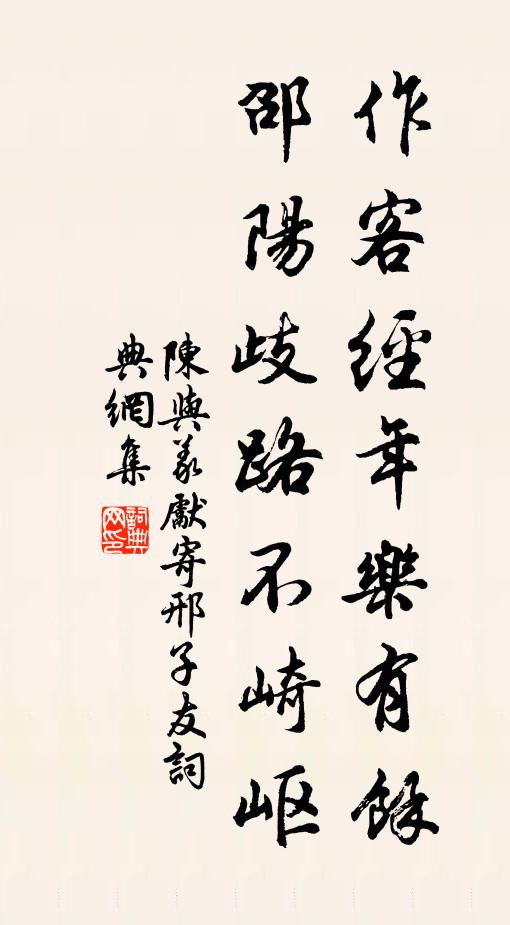 作客經年樂有餘
邵陽歧路不崎嶇
陳與義獻寄邢子友詞
典網集
詞典網印